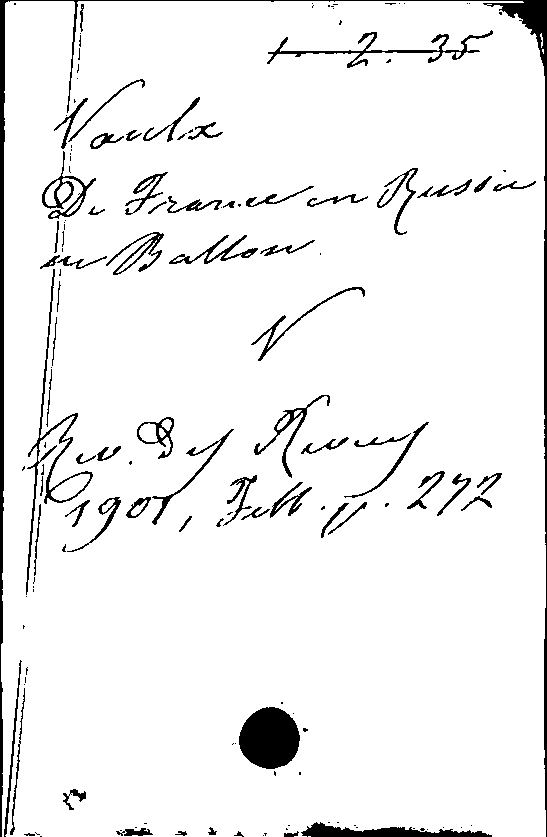 1. 2. 35
Vaulx
De France en Russie
en Ballon
V
Rev. des Revues
1901, Feb. p. 272